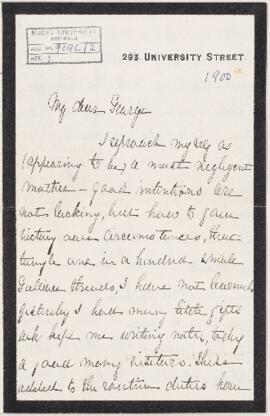 McGILL UNIVERSITY
ARCHIVES
ACC. NO.
REF. 1
293 UNIVERSITY STREET.
1900
My dear George
I reproach myself as
(appearing to be) a most negligent
mother – good intentions are
not lacking, but how to gain
victory over circumstances, that
tangle one in a hundred small
threads, I have not learned.
I had many little gifts
notes, today
a good many visitors. These
added to the routine duties have